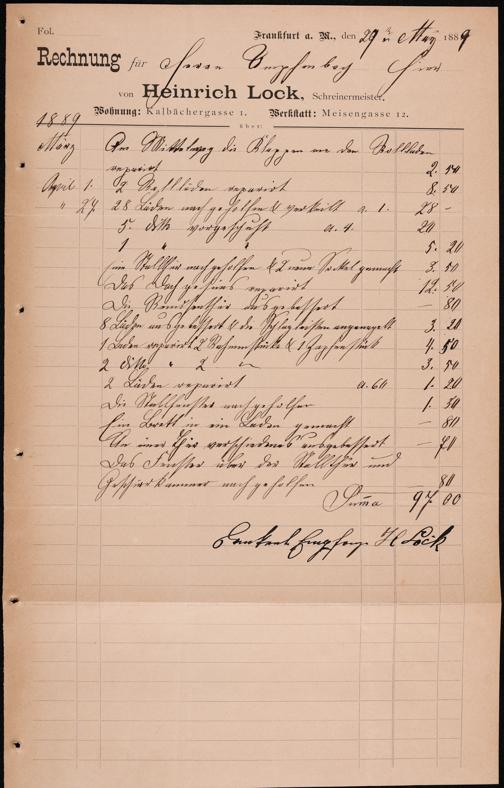 Fol.
Frankfurt a. M., den 29 May 1889
Rechnung für Herrn hier
von Heinrich Lock, Schreinermeister,
Wohnung: Kalbächergasse 1. Werkstatt: Meisengasse 12.
über:
1889
März Am die Klappen an den Rollladen
reparirt 2. 50
April 1. 2 Rollläden reparirt 8. 50
" 27 28 Läden nachgeholfen & a. 1. 28 -
5. ditto vorgeschuht a. 4. 20
1 " " 5. 20
Stallthür nachgeholfen & 2 neue Sockel gemacht 3. 50
Das reparirt 12. 50
Die ausgebessert — 80
8 Läden ausgebessert & die Schlagleisten angenagelt 3. 20
1 Laden reparirt 2 Rahmenstücke & 1 4. 50
2 ditto " 2 " 3. 50
2 Läden reparirt a. 60 1. 20
Die Stallfenster nachgeholfen 1. 30
Ein Brett in ein Laden gemacht — 80
An einer Thür verschiedenes ausgebessert — 70
Das Fenster über der Stallthür und
Geschirrkammer nachgeholfen — 80
Suma 97 00
Dankend Empfangen H Lock